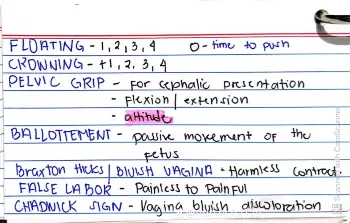 FLOATING - 1, 2, 3, 4 0 - time to push
CROWNING - +1, 2, 3, 4
PELVIC GRIP - For cephalic presentation
- Flexion / extension
- attitude
BALLOTTEMENT - passive movement of the
fetus
Braxton Hicks / BLUISH VAGINA - Harmless contract.
FALSE LABOR - Painless to Painful
CHADWICK SIGN - Vagina bluish discoloration
Scanned with CamScanner